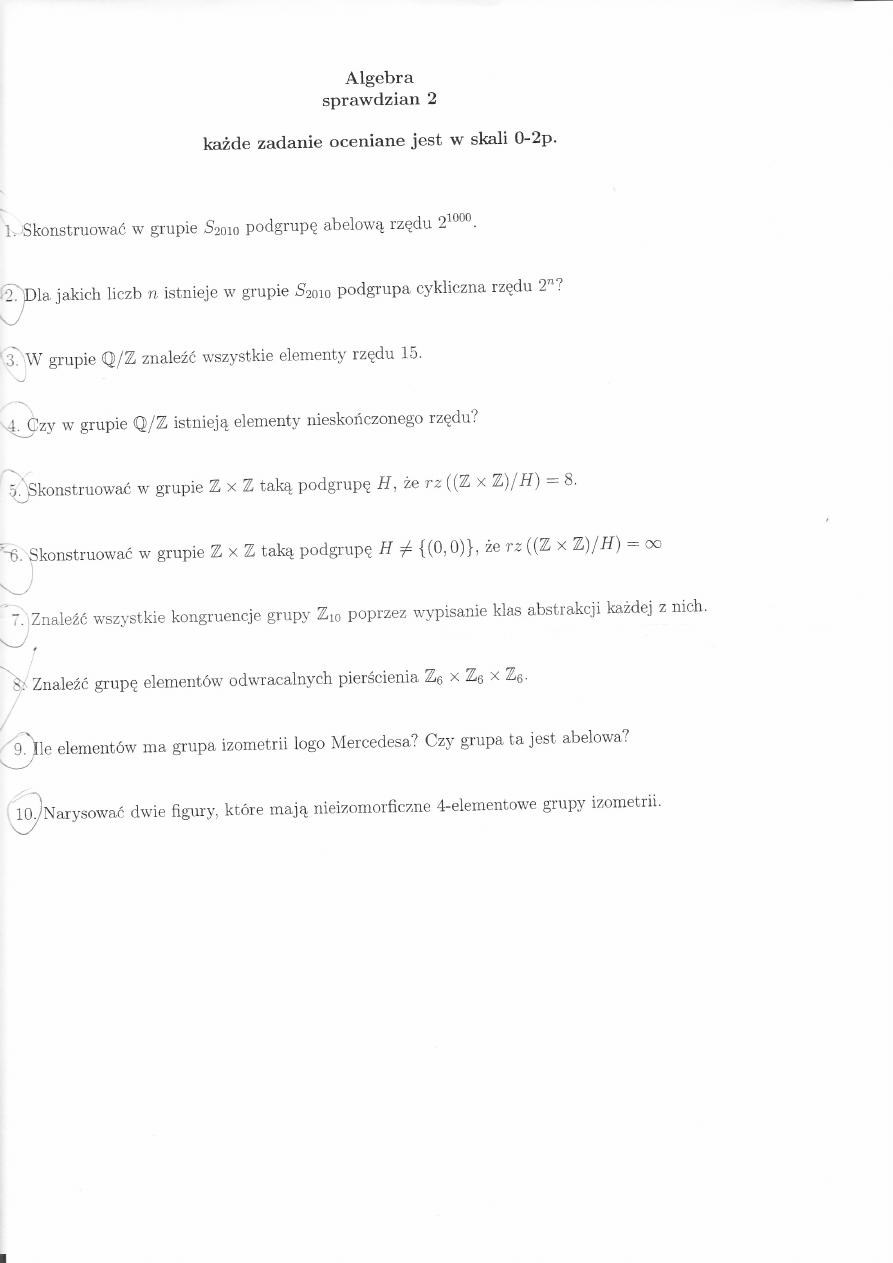 Algebra
sprawdzian 2
każde zadanie oceniane jest w skali 0-2p.
1. Skonstruować w grupie S₂₀₁₀ podgrupę abelową rzędu 2¹⁰⁰⁰.
2. Dla jakich liczb n istnieje w grupie S₂₀₁₀ podgrupa cykliczna rzędu 2ⁿ?
3. W grupie ℚ/ℤ znaleźć wszystkie elementy rzędu 15.
4. Czy w grupie ℚ/ℤ istnieją elementy nieskończonego rzędu?
5. Skonstruować w grupie ℤ × ℤ taką podgrupę H, że rz((ℤ × ℤ)/H) = 8.
6. Skonstruować w grupie ℤ × ℤ taką podgrupę H ≠ {(0,0)}, że rz((ℤ × ℤ)/H) = ∞
7. Znaleźć wszystkie kongruencje grupy ℤ₁₀ poprzez wypisanie klas abstrakcji każdej z nich.
8. Znaleźć grupę elementów odwracalnych pierścienia ℤ₆ × ℤ₆ × ℤ₆.
9. Ile elementów ma grupa izometrii logo Mercedesa? Czy grupa ta jest abelowa?
10. Narysować dwie figury, które mają nieizomorficzne 4-elementowe grupy izometrii.